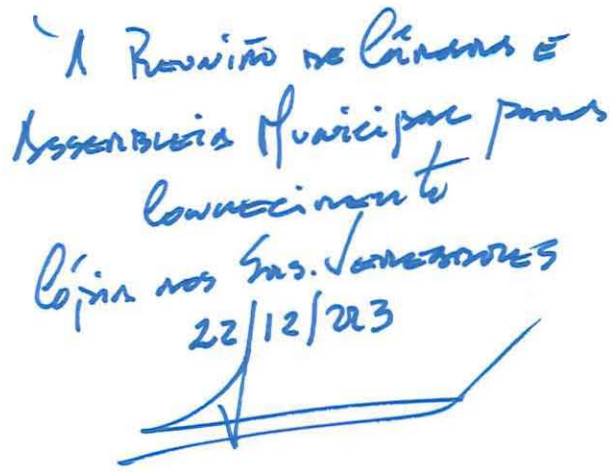 À Reunião de Câmara e
Assembleia Municipal para
Conhecimento
Cópia aos Srs. Vereadores
22/12/2023